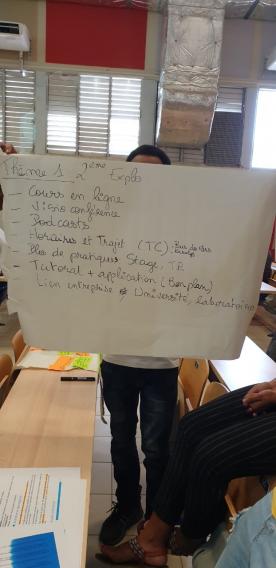 Thème 1 2ème Explo
- Cours en ligne
- Visio conférence
- Podcasts
- Horaires et Trajet (TC)
- Plus de pratiques Stage, TP
- Tutorat + application (Bon plan)
- Lien entreprise Université, laboratoire